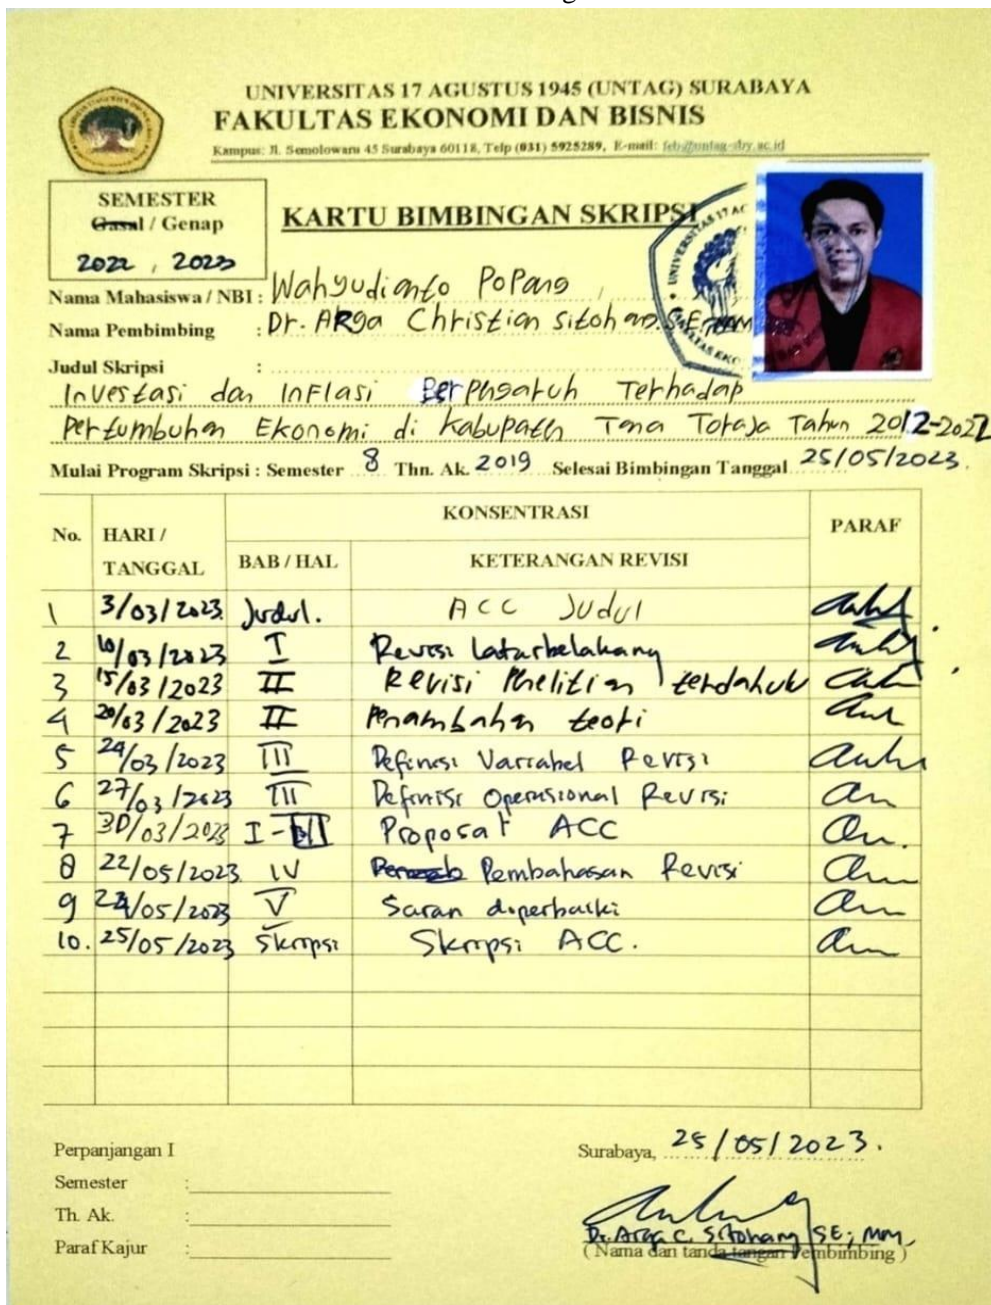 UNIVERSITAS 17 AGUSTUS 1945 (UNTAG) SURABAYA
FAKULTAS EKONOMI DAN BISNIS
Kampus: Jl. Semolowaru 45 Surabaya 60118, Telp (031) 5925289, E-mail: feb@untag-sby.ac.id
SEMESTER
Gasal / Genap
2022, 2023
KARTU BIMBINGAN SKRIPSI
Nama Mahasiswa / NBI : Wahyudianto Popang
Nama Pembimbing : Dr. Arga Christian Sitohang SE
Judul Skripsi :
Investasi dan Inflasi Berpngaruh Terhadap
Pertumbuhan Ekonomi di Kabupaten Tana Toraja Tahun 2012-2022
Mulai Program Skripsi : Semester 8 Thn. Ak. 2019 Selesai Bimbingan Tanggal 25/05/2023.
No. HARI / TANGGAL KONSENTRASI PARAF
BAB / HAL KETERANGAN REVISI
1 3/03/2023 Judul. ACC Judul
2 10/03/2023 I Revisi Latarbelakang
3 15/03/2023 II Revisi Pnelitian terdahulu
4 20/03/2023 II Penambahan teori
5 24/03/2023 III Definisi Variabel Revisi
6 27/03/2023 III Definisi Operasional Revisi
7 30/03/2023 I - III Proposal ACC
8 22/05/2023 IV Pembahasan Revisi
9 24/05/2023 V Saran diperbaiki
10. 25/05/2023 Skripsi Skripsi ACC.
Perpanjangan I
Semester :
Th. Ak. :
Paraf Kajur :
Surabaya, 25/05/2023.
Dr. Arga C. Sitohang SE; MM,
( Nama dan tanda tangan Pembimbing )